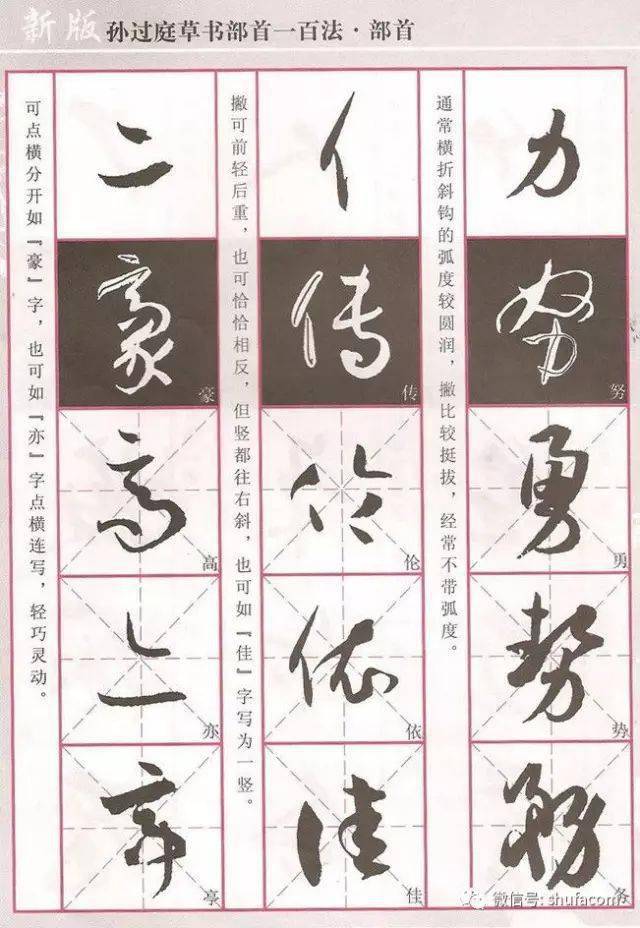 新版 孙过庭草书部首一百法·部首
力
努
勇
势
务
通常横折斜钩的弧度较圆润，撇比较挺拔，经常不带弧度。
亻
传
伦
依
佳
撇可前轻后重，也可恰恰相反，但竖都往右斜，也可如『佳』字写为一竖。
亠
豪
高
亦
亭
可点横分开如『豪』字，也可如『亦』字点横连写，轻巧灵动。
微信号: shufacom